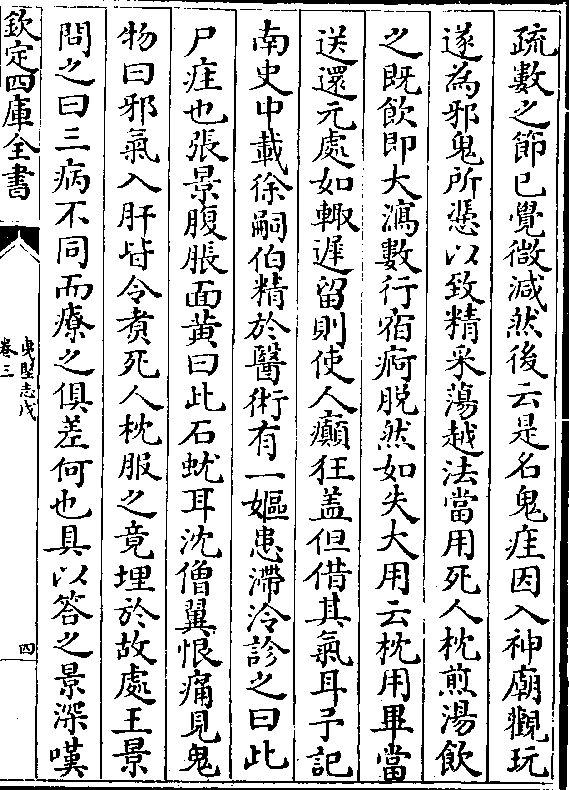 疏數之節已覺微減然後云是名鬼疰因入神廟觀玩
遂為邪鬼所慿以致精采蕩越法當用死人枕煎湯飲
之既飲即大瀉數行宿疴脫然如失大用云枕用畢當
送還元處如輙遲留則使人癲狂盖但借其氣耳予記
南史中載徐嗣伯精於醫術有一嫗患滯冷診之曰此
尸疰也張景腹脹面黄曰此石蚘耳沈僧翼眼痛見鬼
物曰邪氣入肝皆令煮死人枕服之竟埋於故處王景
問之曰三病不同而療之俱差何也具以答之景深嘆
欽定四庫全書
夷堅志戊
卷三
四